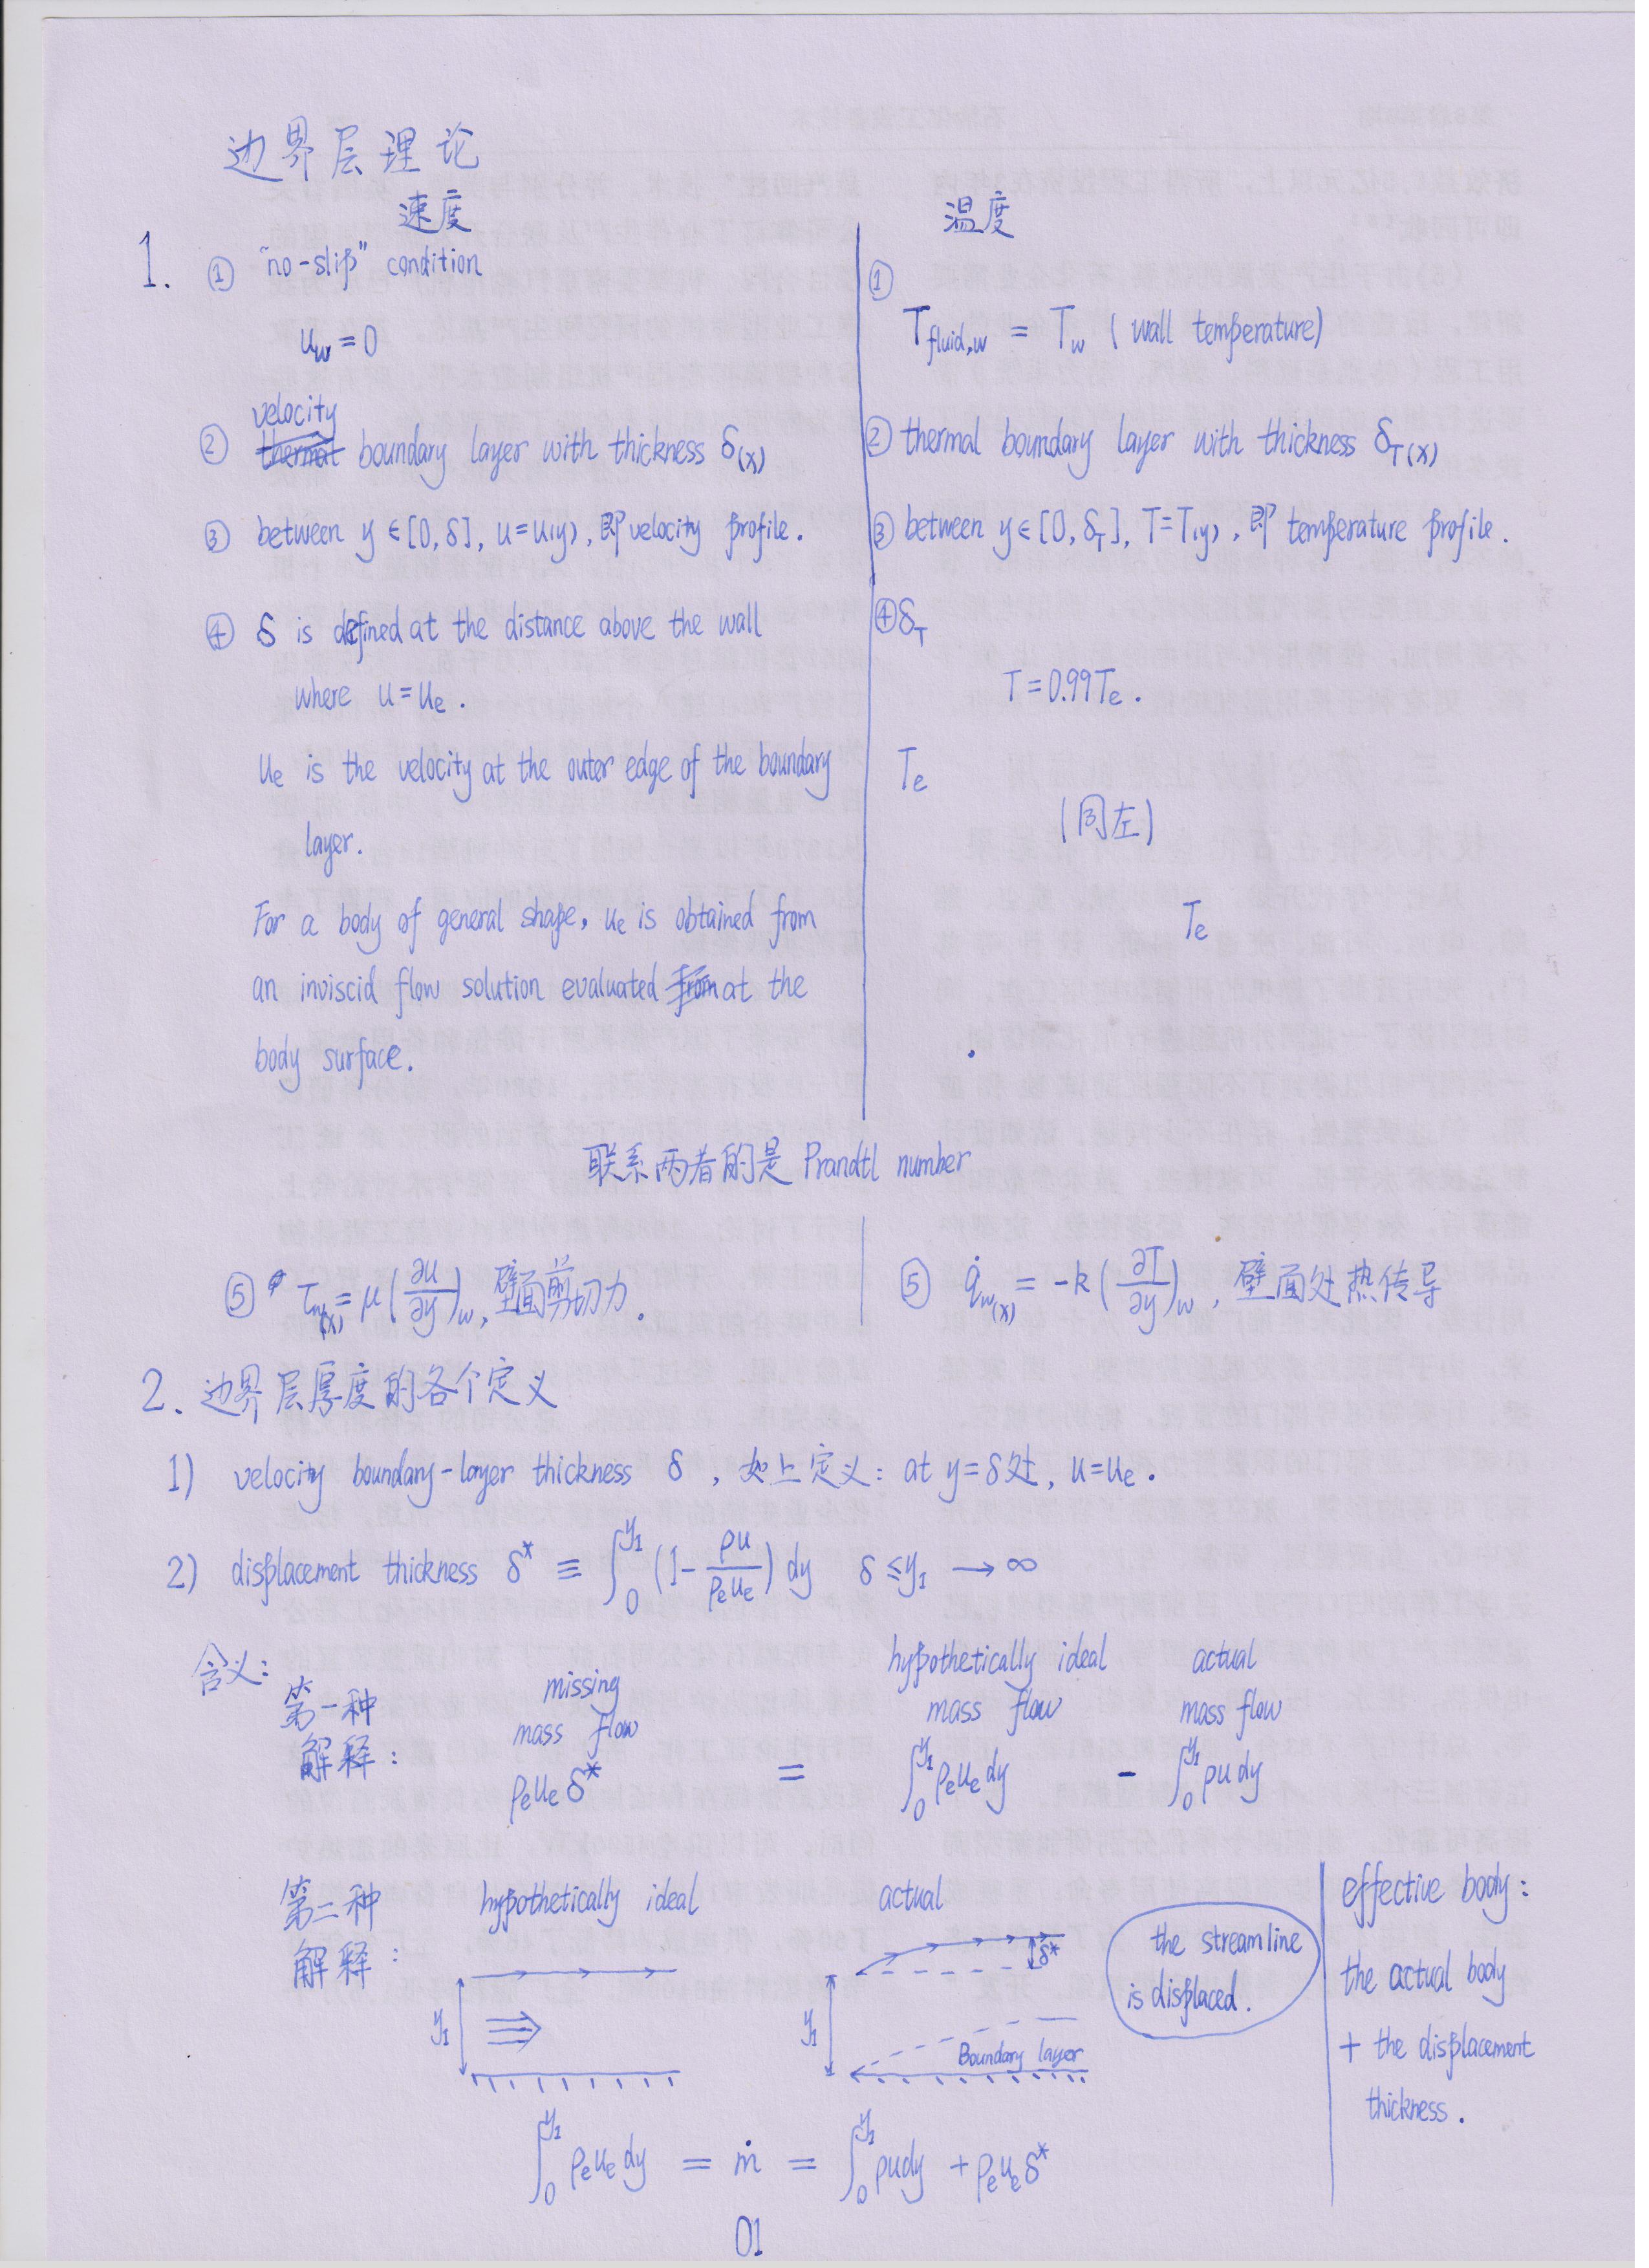 边界层理论
速度
温度
1. ① "no-slip" condition
u_w = 0
② velocity boundary layer with thickness δ(x)
③ between y∈[0, δ], u=u(y), 即 velocity profile.
④ δ is defined at the distance above the wall
where u=u_e.
u_e is the velocity at the outer edge of the boundary
layer.
For a body of general shape, u_e is obtained from
an inviscid flow solution evaluated at the
body surface.
①
T_fluid,w = T_w ( wall temperature)
② thermal boundary layer with thickness δ_T(x)
③ between y∈[0, δ_T], T=T(y), 即 temperature profile.
④ δ_T
T=0.99T_e.
T_e
(同左)
T_e
联系两者的是 Prandtl number
⑤ τ_w(x) = μ(∂u/∂y)_w, 壁面剪切力.
⑤ q̇_w(x) = -k(∂T/∂y)_w, 壁面处热传导
2. 边界层厚度的各个定义
1) velocity boundary-layer thickness δ, 如上定义: at y=δ处, u=u_e.
2) displacement thickness δ* ≡ ∫₀^{y₁} (1 - ρu/ρ_e u_e) dy δ ≤ y₁ → ∞
含义:
第一种
解释:
missing
mass flow
ρ_e u_e δ*
=
hypothetically ideal
mass flow
∫₀^{y₁} ρ_e u_e dy
-
actual
mass flow
∫₀^{y₁} ρu dy
第二种
解释:
hypothetically ideal
y₁
actual
δ*
y₁
Boundary layer
the streamline
is displaced.
effective body:
the actual body
+ the displacement
thickness.
∫₀^{y₁} ρ_e u_e dy = ṁ = ∫₀^{y₁} ρu dy + ρ_e u_e δ*
01